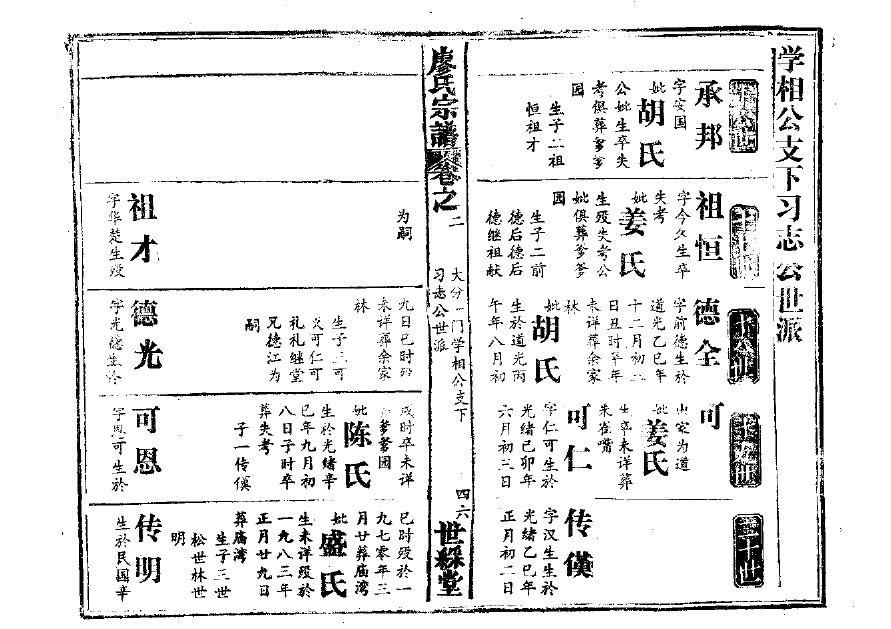 学相公支下习志公世派
承邦
字安国
妣胡氏
公妣生卒失
考俱葬爹爹
园
生子二祖
恒祖才
祖恒
字今久生卒
失考
妣姜氏
生殁失考公
妣俱葬爹爹
园
生子二前
德后德后
德继祖献
德全
字前德生於
道光乙巳年
十二月初二
日丑时卒年
未详葬余家
林
妣胡氏
生於道光丙
午年八月初
可
出家为道
妣姜氏
生卒未详葬
朱雀嘴
可仁
字仁可生於
光绪己卯年
六月初三日
二十世
传僕
字汉生生於
光绪乙巳年
正月初二日
廖氏宗谱
卷之二
大分一门学相公支下
习志公世派
四六
世綵堂
为嗣
祖才
字华楚生殁
九日巳时殁
未详葬余家
林
生子三可
炎可仁可
礼礼继堂
兄德江为
嗣
德光
字光德生於
戌时卒未详
葬爹爹园
妣陈氏
生於光绪辛
巳年九月初
八日子时卒
葬失考
子一传僕
可恩
字恩可生於
巳时殁於一
九七零年三
月廿葬庙湾
妣盛氏
生未详殁於
一九八三年
正月廿九日
葬庙湾
生子三世
松世林世
明
传明
生於民国辛